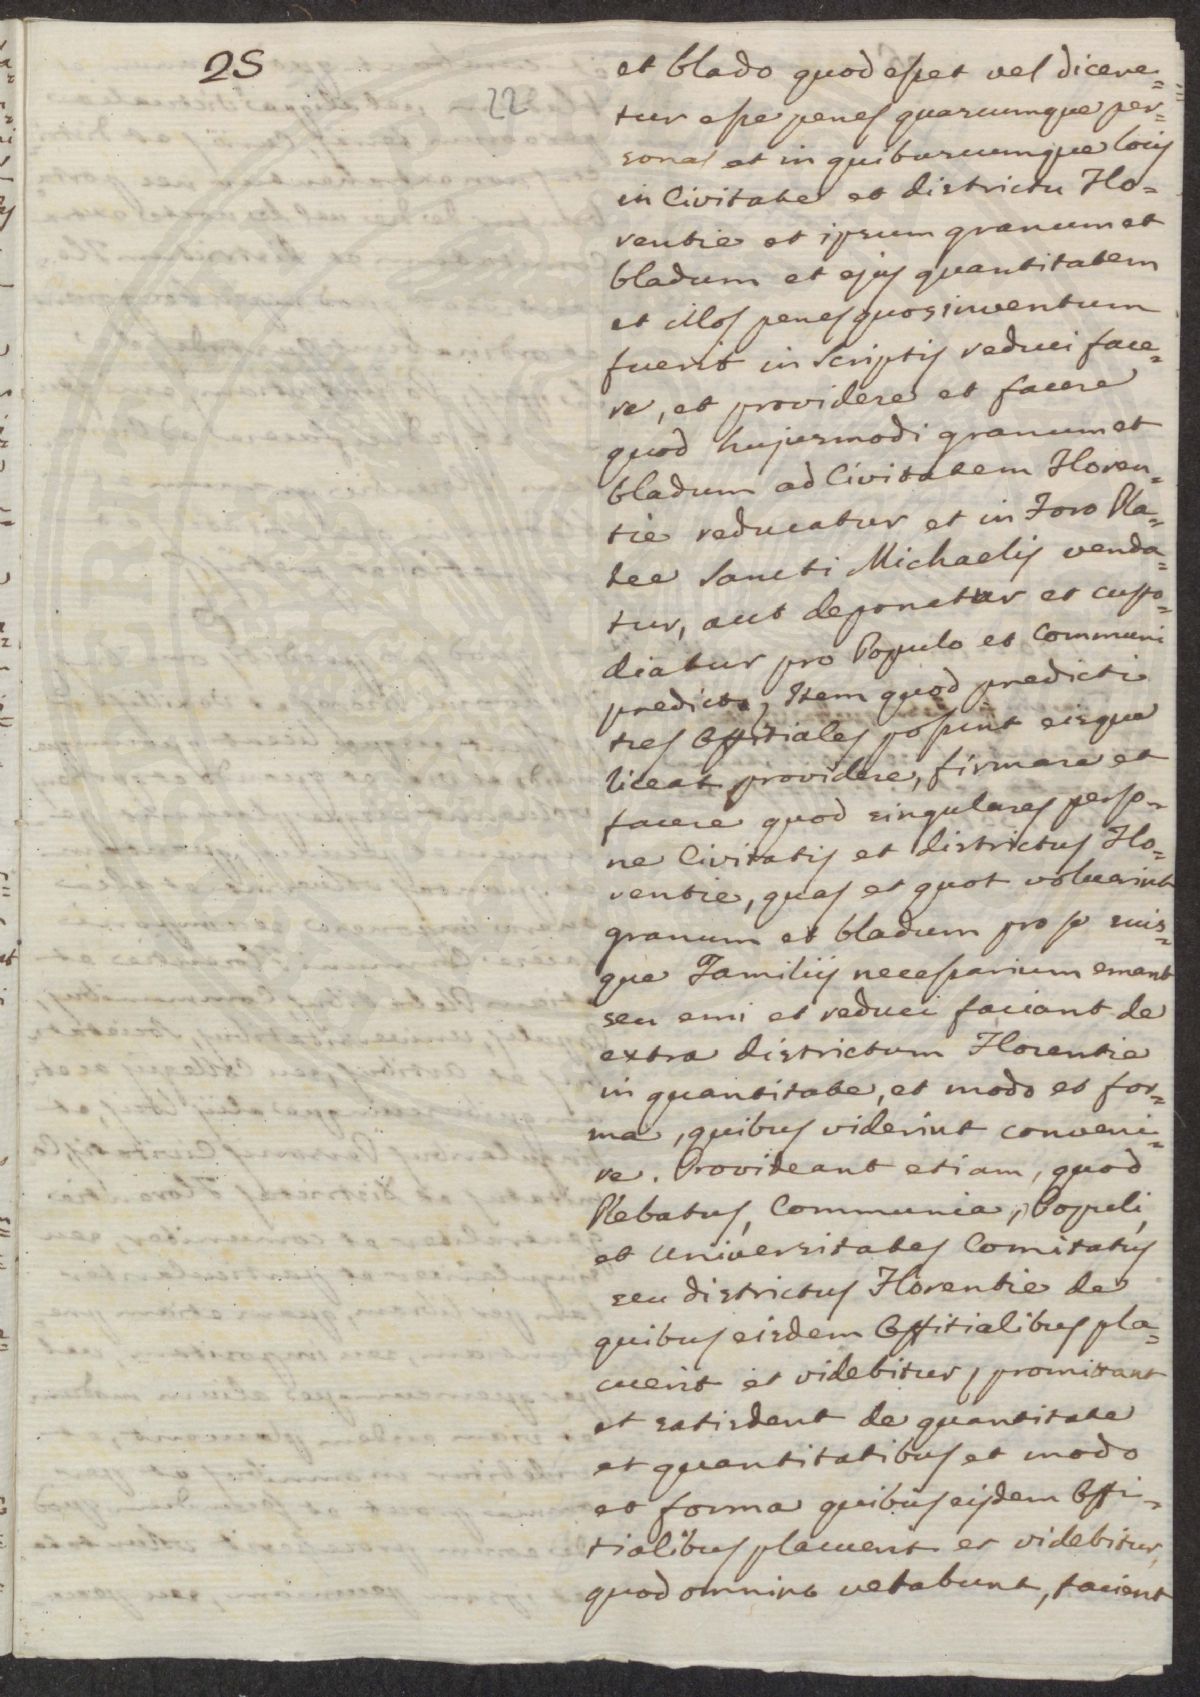 25
22
et blado quod esset vel dicere=
tur esse penes quascumque per=
sonas et in quibuscumque locis
in Civitate et districtu Flo=
rentie et ipsum granum et
bladum et ejus quantitatem
et illos penes quos inventum
fuerit in scriptis reduci face=
re, et providere et facere
quod hujusmodi granum et
bladum ad Civitatem Floren=
tie reducatur et in Foro Pla=
tee Sancti Michaelis venda=
tur, aut deponatur et custo=
diatur pro Populo et Communi
predicto, Item quod predicti
tres Offitiales possint eisque
liceat providere, firmare et
facere quod singulares perso=
ne Civitatis et districtus Flo=
rentie, quas et quot voluerint
granum et bladum pro se suis=
que Familiis necessarium emant
seu emi et reduci faciant de
extra districtum Florentie
in quantitate, et modo et for=
ma, quibus viderint conveni=
re. Provideant etiam, quod
Plebatus, Communia, Populi,
et Universitates Comitatus
seu districtus Florentie de
quibus eisdem Offitialibus pla=
cuerit et videbitur, promittant
et satisdent de quantitate
et quantitatibus et modo
et forma quibus eisdem Offi=
tialibus placuerit et videbitur,
quod omnino vetabunt, facient